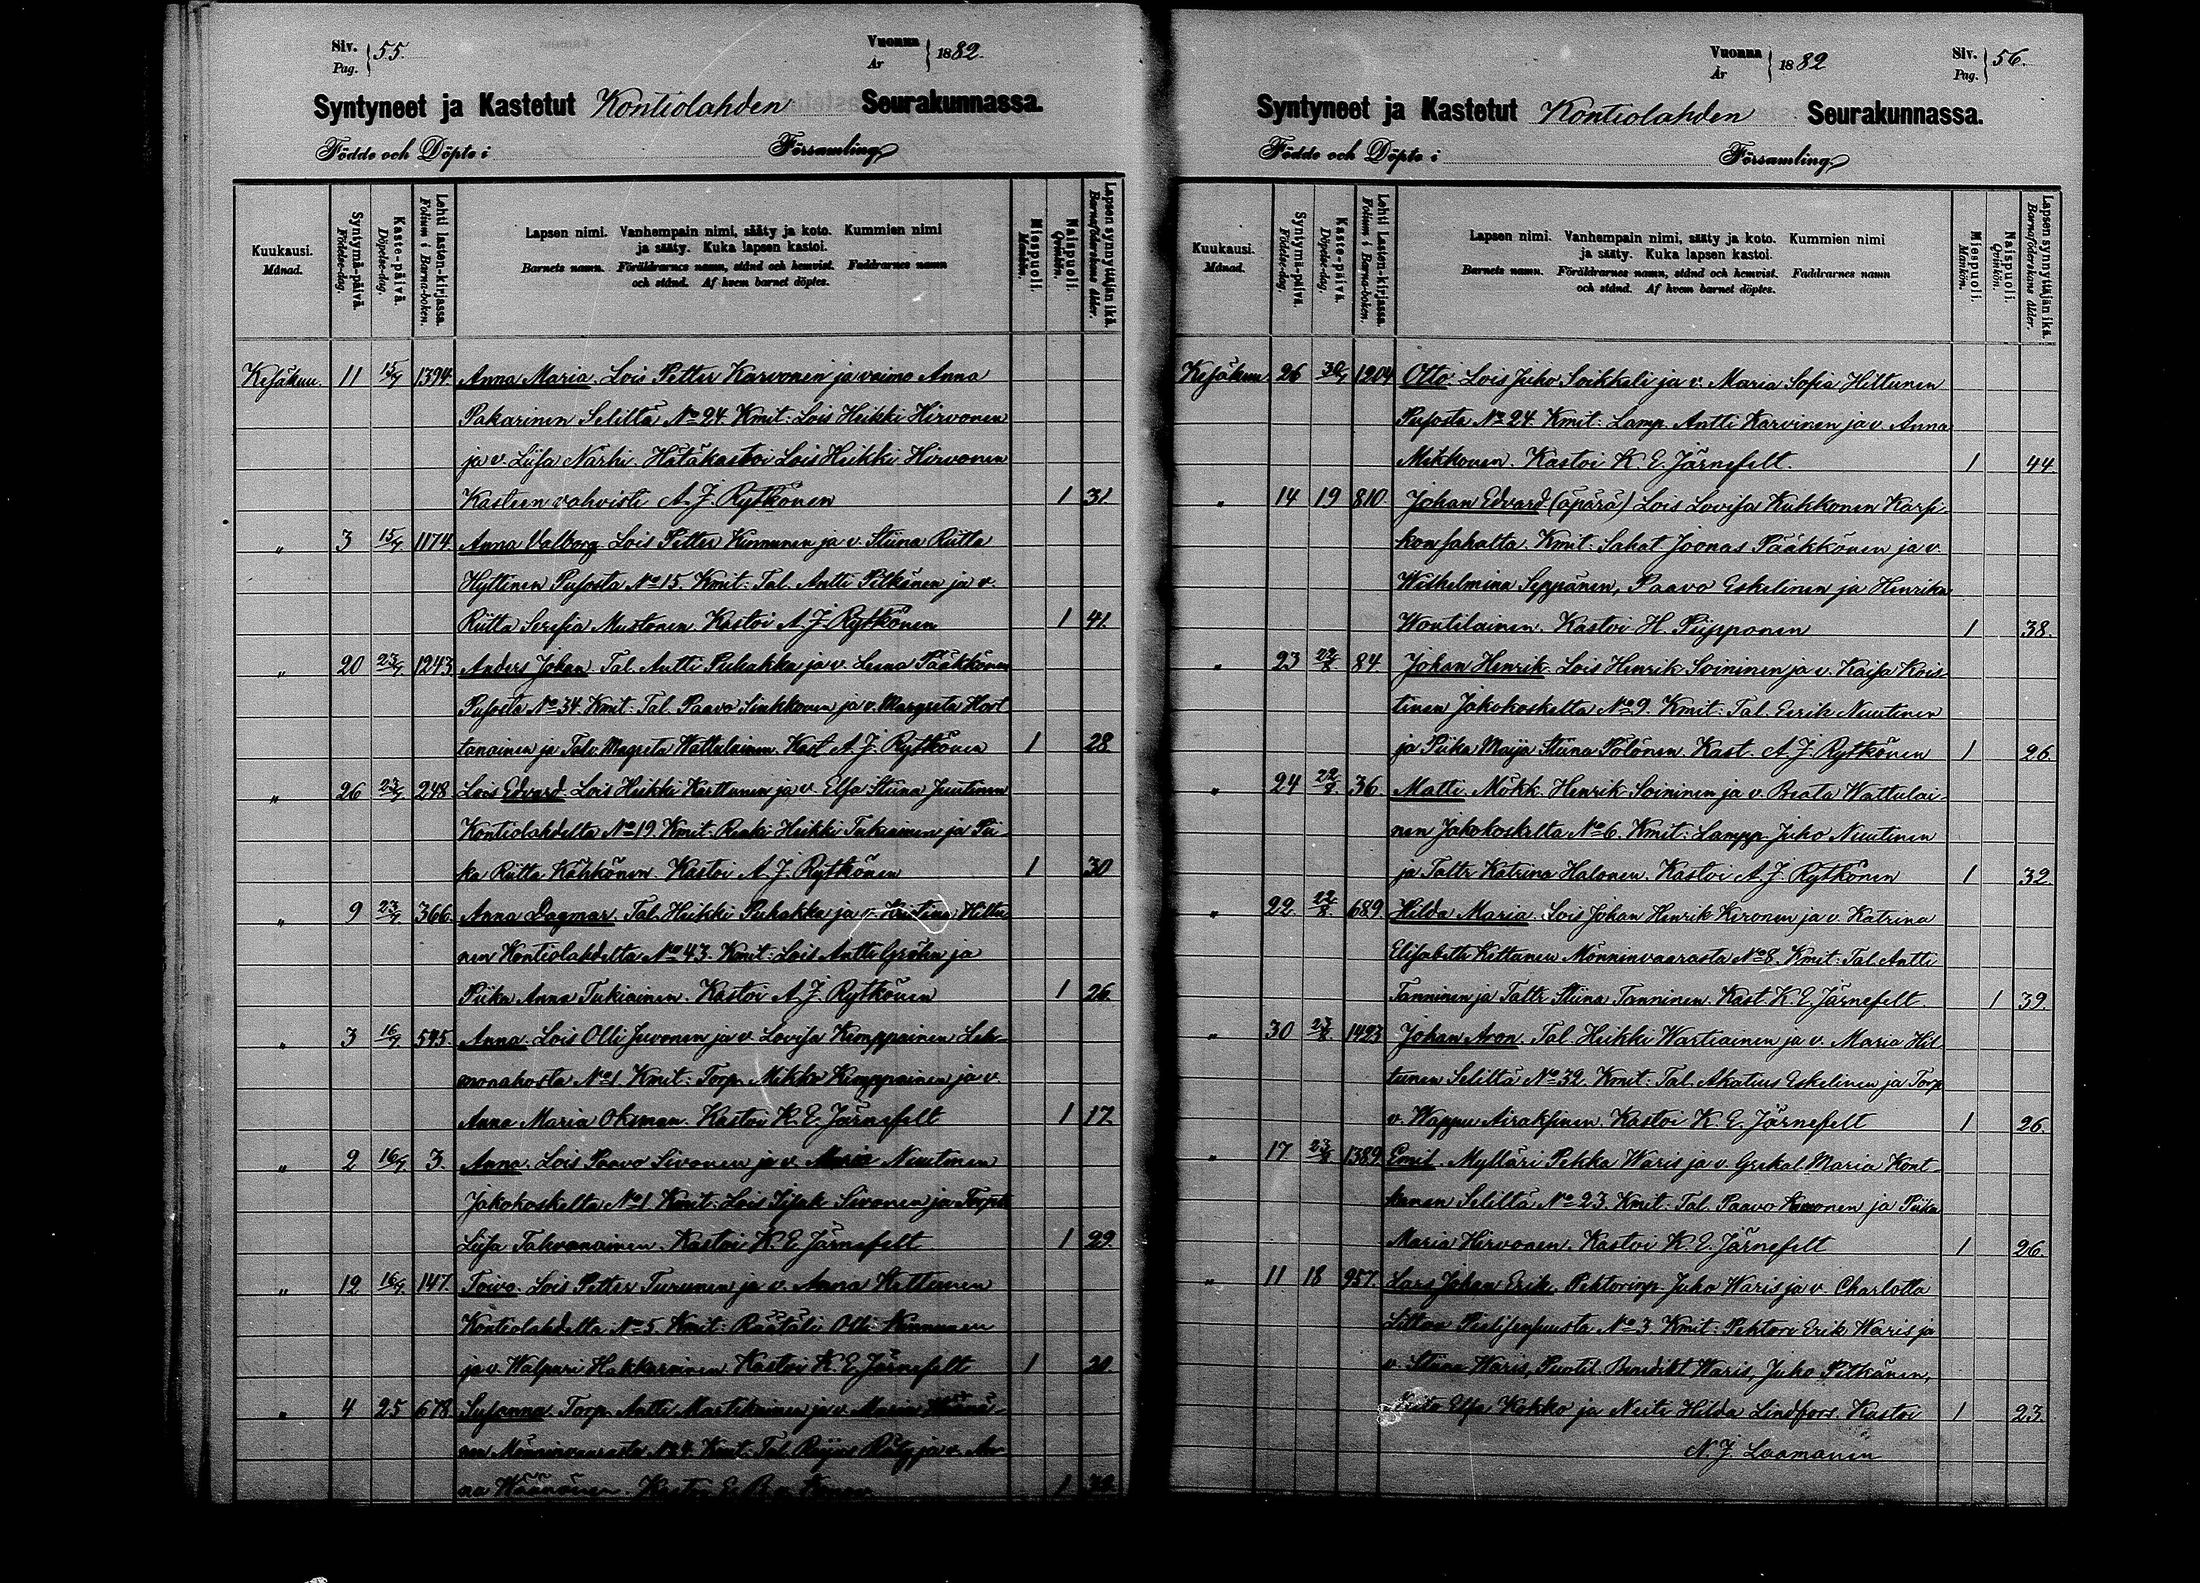 Siv. Pag. } 55.
Vuonna År } 1882.
Syntyneet ja Kastetut Kontiolahden Seurakunnassa.
Födde och Döpte i Församling
Kuukausi. Månad.
Syntymä-päivä. Födelse-dag.
Kaste-päivä. Döpelse-dag.
Lehti lasten-kirjassa. Folium i Barna-boken.
Lapsen nimi. Vanhempain nimi, sääty ja koto. Kummien nimi
ja sääty. Kuka lapsen kastoi.
Barnets namn. Föräldrarnes namn, stånd och hemvist. Faddrarnes namn
och stånd. Af hvem barnet döptes.
Miespuoli. Mankön.
Naispuoli. Qvinkön.
Lapsen synnyttäjän ikä. Barnaföderskans ålder.
Kesäkuu. 11 15/7 1394. Anna Maria. Lois Petter Karvonen ja vaimo Anna
Pakarinen Seliltä No 24. Kmit: Lois Heikki Hirvonen
ja v. Liisa Närhi. Hätäkastoi Lois Heikki Hirvonen
Kasteen vahvisti A. J. Rytkönen 1 31.
" 3 15/7 1174. Anna Valborg Lois Petter Kinnunen ja v. Stiina Riitta
Hyttinen Pusosta No 15. Kmit: Tal. Antti Pitkänen ja v.
Riitta Serefia Mustonen. Kastoi A. J. Rytkönen 1 41.
" 20 23/7 1243. Anders Johan. Tal. Antti Puhakka ja v. Leena Pääkkönen
Pusosta No 34. Kmit: Tal. Paavo Sinkkonen ja v. Margreta Hort
tanainen ja Talv. Magreta Wattulainen. Kast. A. J. Rytkönen 1 28
" 26 23/7 248 Lois Edvard. Lois Heikki Karttunen ja v. Elsa Stiina Juutinen
Kontiolahdelta No 19. Kmit: Renki Heikki Tukiainen ja Pii
ka Riitta Kähkönen. Kastoi A. J. Rytkönen 1 30
" 9 23/7 366. Anna Dagmar. Tal. Heikki Puhakka ja v. Kristina Hiltu
nen Kontiolahdelta No 43. Kmit: Lois Antti Gröhn ja
Piika Anna Tukiainen. Kastoi A. J. Rytkönen 1 26.
" 3 16/7 545. Anna. Lois Olli Juvonen ja v. Lovisa Kimppainen Leh
monahosta No 1 Kmit: Torp. Mikko Kimppainen ja v.
Anna Maria Oksman. Kastoi K. E. Järnefelt 1 17.
" 2 16/7 3. Anna. Lois Paavo Sivonen ja v. Maria Nuutinen
Jakokoskelta No 1 Kmit: Lois Iisak Sivonen ja Torp.
Liisa Tahvanainen. Kastoi K. E. Järnefelt 1 29.
" 12 16/7 147. Toivo. Lois Petter Turunen ja v. Anna Kettunen
Kontiolahdelta No 5. Kmit: Räätäli Olli Kinnunen
ja v. Walpuri Hakkarainen Kastoi K. E. Järnefelt 1 20.
" 4 25 678 Susanna. Torp. Antti Martikainen ja v. Maria
nen Mönninvaarasta No 4. Kmit: Tal. ja v. An
na Wäänänen Kastoi 1
Vuonna År } 1882
Siv. Pag. } 56.
Syntyneet ja Kastetut Kontiolahden Seurakunnassa.
Födde och Döpte i Församling
Kuukausi. Månad.
Syntymä-päivä. Födelse-dag.
Kaste-päivä. Döpelse-dag.
Lehti Lasten-kirjassa. Folium i Barna-boken.
Lapsen nimi. Vanhempain nimi, sääty ja koto. Kummien nimi
ja sääty. Kuka lapsen kastoi.
Barnets namn. Föräldrarnes namn, stånd och hemvist. Faddrarnes namn
och stånd. Af hvem barnet döptes.
Miespuoli. Mankön.
Naispuoli. Qvinkön.
Lapsen synnyttäjän ikä. Barnaföderskans ålder.
Kesäkuu 26 30/7 1204 Otto. Lois Juho Soikkeli ja v. Maria Sofia Hiltunen
Pusosta No 24. Kmit: Lamp. Antti Karvinen ja v. Anna
Mikkonen. Kastoi K. E. Järnefelt. 1 44
" 14 19 810 Johan Edvard (äpärä) Lois Lovisa Kukkonen Karsi-
kon sahalta. Kmit: Sahat Joonas Pääkkönen ja v.
Wilhelmina Seppänen, Paavo Eskelinen ja Henrika
Wontilainen. Kastoi H. Piipponen 1 38.
" 23 22/8 84 Johan Henrik. Lois Henrik Soininen ja v. Kaisa Kois-
tinen Jakokoskelta No 9. Kmit: Tal. Eerik Nuutinen
ja Piika Maija Stiina Pölönen. Kast. A. J. Rytkönen 1 26.
" 24 22/8 36 Matti. Mökk. Henrik Soininen ja v. Beata Wattulai-
nen Jakokoskelta No 6. Kmit: Lampp. Juho Nuutinen
ja Taltr Katrina Halonen. Kastoi A. J. Rytkönen 1 32.
" 22 22/8 689. Hilda Maria. Lois Johan Henrik Hironen ja v. Katrina
Elisabeth Kettunen Mönninvaarasta No 8. Kmit: Tal. Antti
Tanninen ja Taltr Stiina Tanninen. Kast. K. E. Järnefelt 1 39.
" 30 23/8 1423 Johan Aron. Tal. Heikki Wartiainen ja v. Maria Hil
tunen Seliltä No 32. Kmit: Tal. Akatius Eskelinen ja Torp
v. Wappu Airaksinen. Kastoi K. E. Järnefelt 1 26.
" 17 23/8 1389 Emil. Mylläri Pekka Waris ja v. Grekal. Maria Kont-
kanen Seliltä No 23. Kmit: Tal. Paavo Kononen ja Piika
Maria Hirvonen. Kastoi K. E. Järnefelt 1 26.
" 11 18 957. Lars Johan Erik. Pehtorinp. Juho Waris ja v. Charlotta
No 3. Kmit: Pehtori Erik Waris ja
v. Stiina Waris, Puotil. Benedikt Waris, Juho Pitkänen,
Neito Elsa Kokko ja Neiti Hilda Lindfors. Kastoi 1 23.
N. J. Laamanen